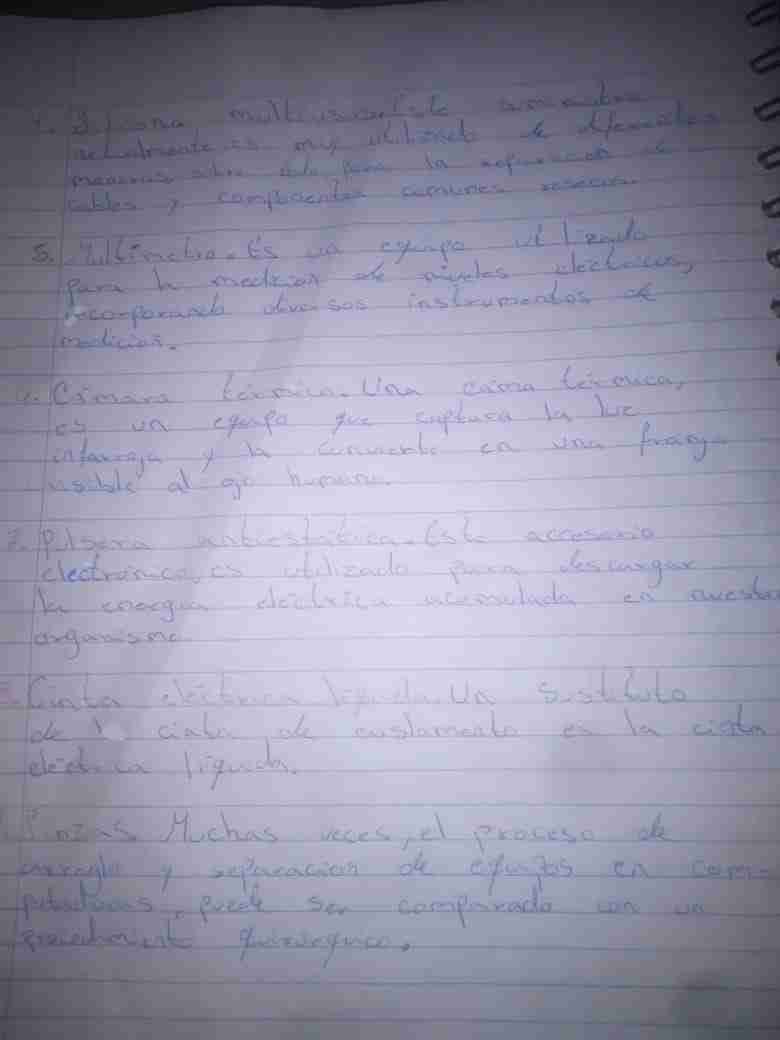 4. Silicona multiusos. Este suministro
actualmente, es muy utilizado de diferentes
maneras sobre todo para la reparación de
cables y componentes comunes
5. Multímetro. Es un equipo utilizado
para la medición de niveles eléctricos,
incorporando diversos instrumentos de
medición.
Cámara térmica. Una cámara térmica,
es un equipo que captura la luz
infarroja y la convierte en una franja
visible al ojo humano.
7. Pulsera antiestática. Este accesorio
electrónico, es utilizado para descargar
la energia eléctrica acumulada en nuestro
organismo
Cinta eléctrica líquida. Un sustituto
de la cinta de aislamiento es la cinta
eléctrica líquida.
Pinzas Muchas veces, el proceso de
arreglo y separación de equipos en com-
putadoras, puede ser comparado con un
procedimiento quirurgico.